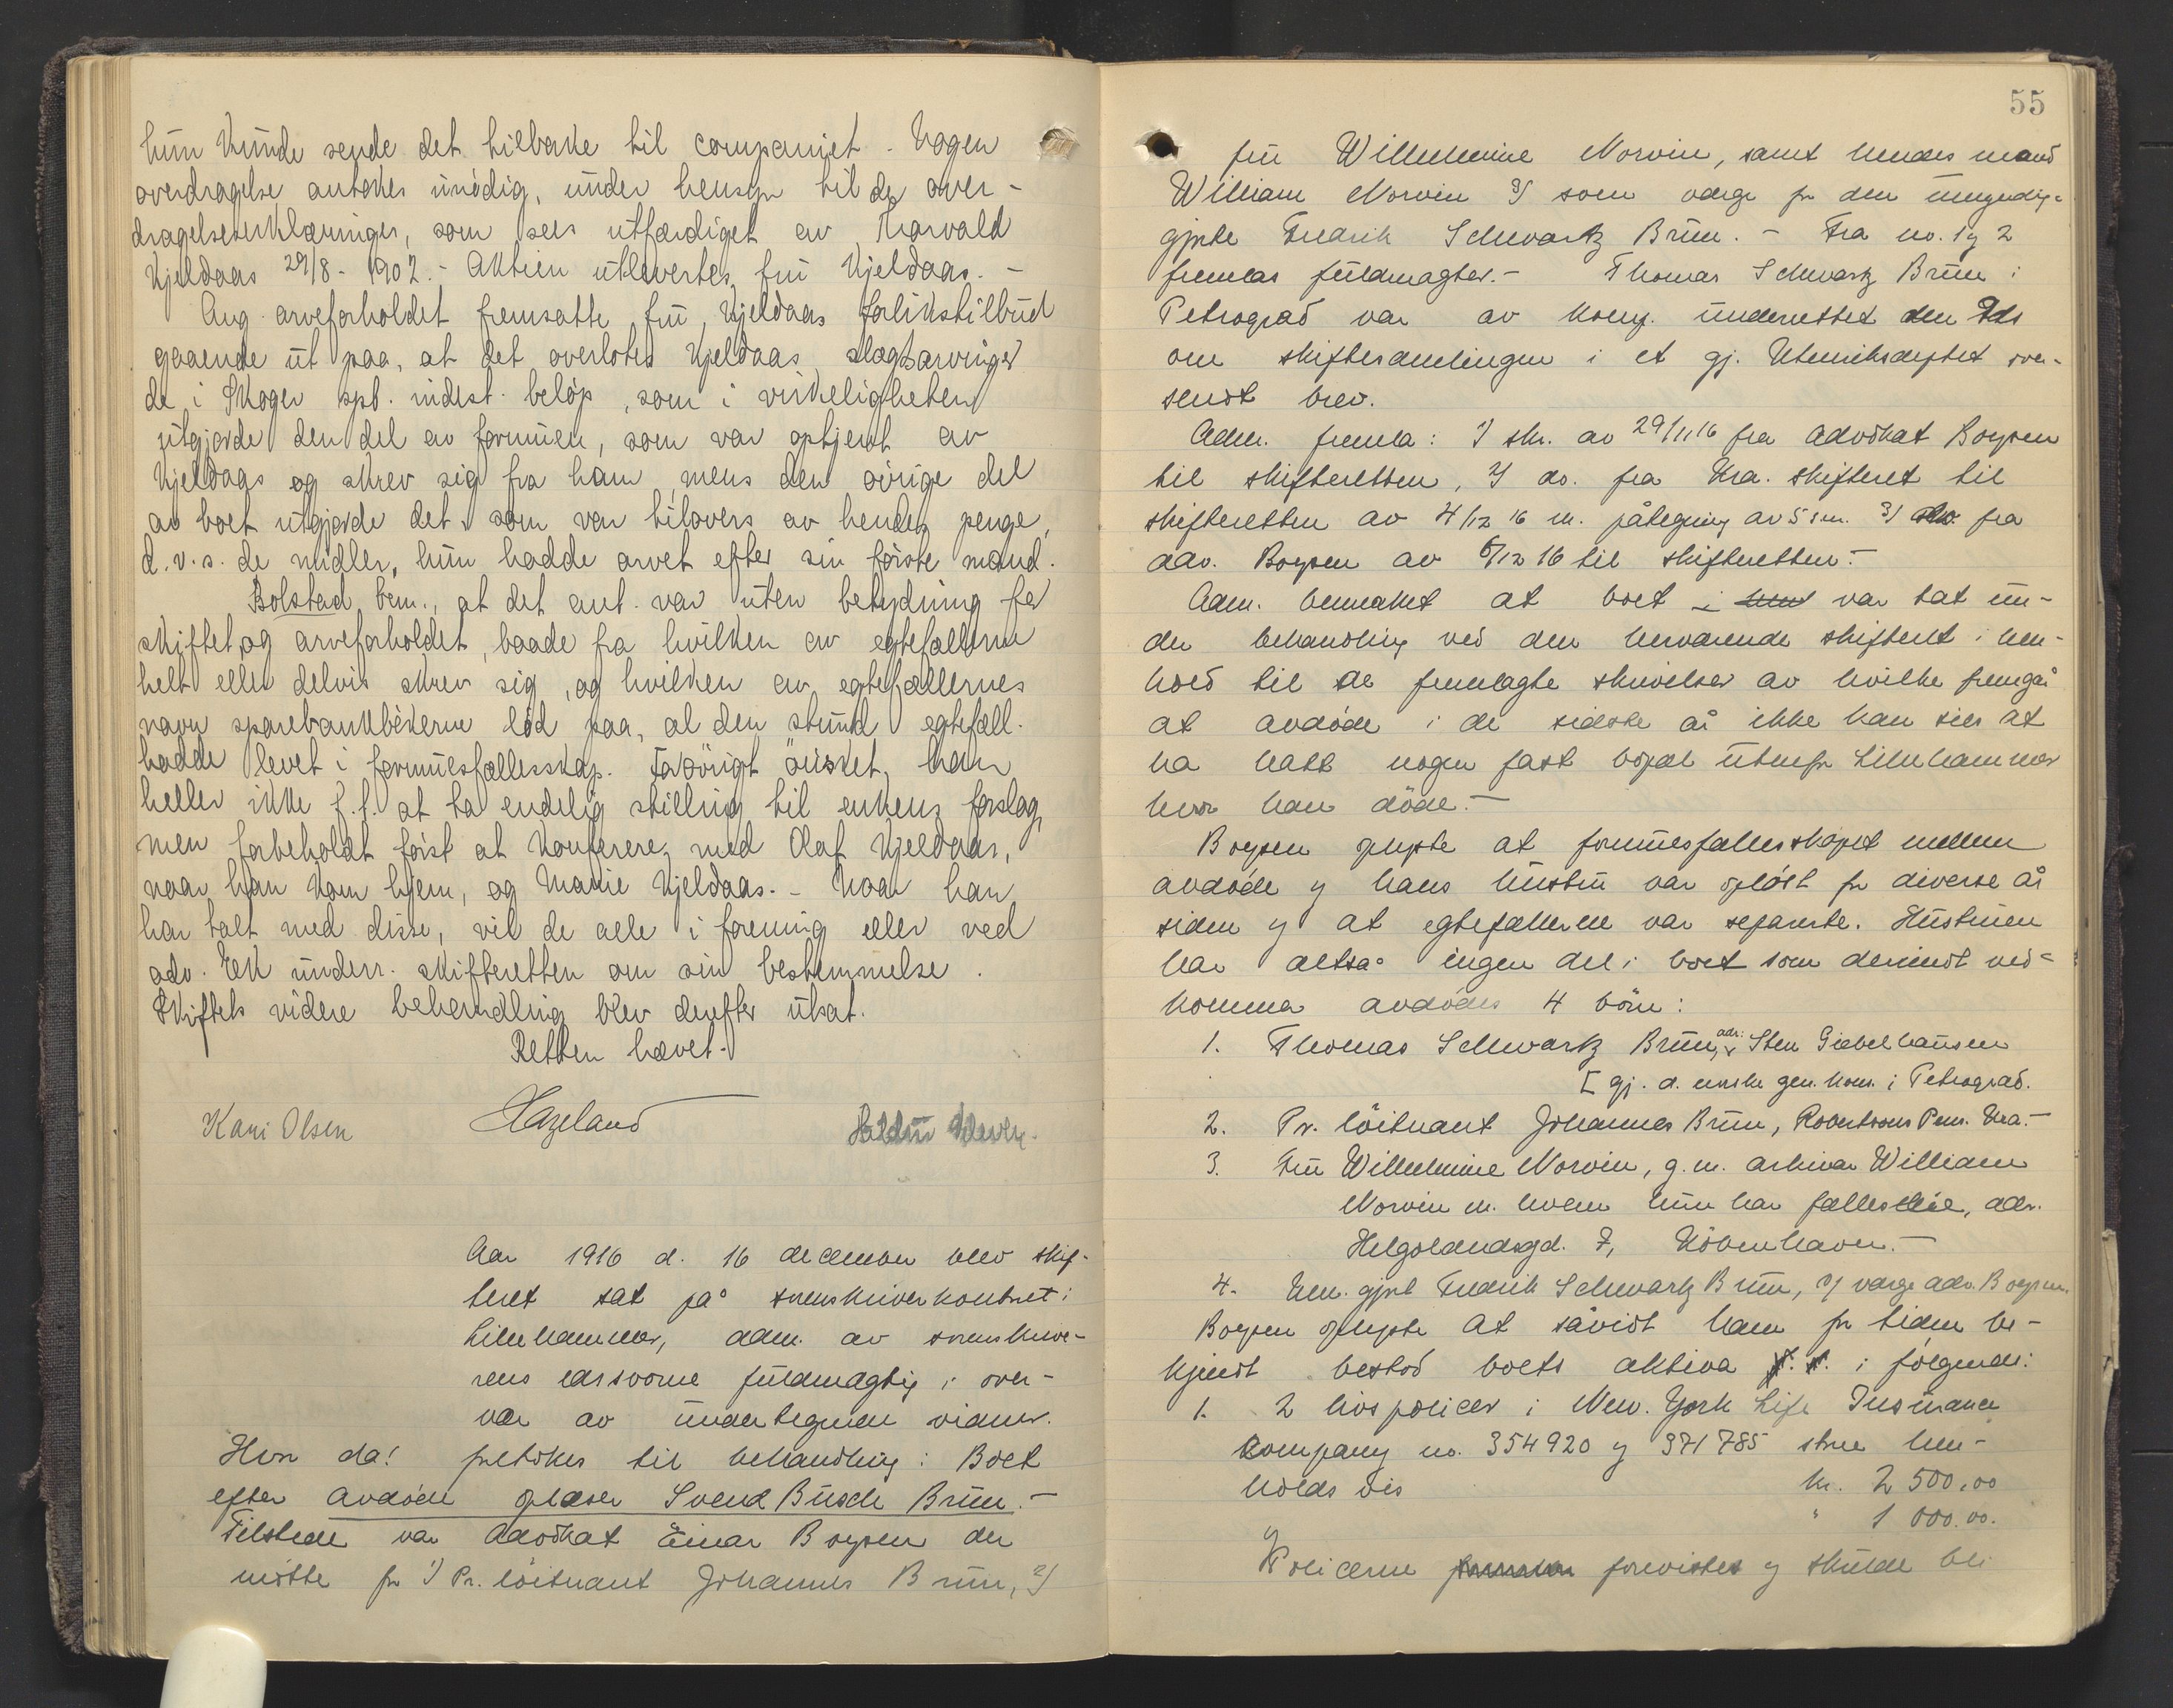 hun kunde sende det tilbake til companiet. Nogen
overdragelse antokes unödig, under hensyn til de over-
dragelseserklæringer, som sees utfærdiget av Tharvald
Kjeldaas 29/8-1907. - Aktien utlevertes fru Kjeldaas. -
Ang. arveforholdet fremsatte fru Kjeldaas forlikstilbud
gaaende ut paa, at det overlotes Kjeldaas slegtsarvinger
de i Skoger spb. indest. beløp, som i virkeligheten
utgjorde den del av formuen, som var optjent av
Kjeldaas og skrev sig fra ham, mens den övrige del
av boet utgjorde det, som var tilovers av hendes penge,
d.v.s. de midler, hun hadde arvet efter sin förste mand.
Bolstad bem., at det ant. var uten betydning for
skiftet og arveforholdet, baade fra hvilken av egtefællerne
helt eller delvis skrev sig, og hvilken av egtefællernes
navn sparebankbökerne löd paa, al den stund egtefæll.
hadde levet i formuesfællesskap. Forövrigt önsket han
heller ikke f.t. at ta endelig stilling til enkens forslag,
men forbeholdt först at konferere med Olaf Kjeldaas,
naar han kom hjem, og Marie Kjeldaas. - Naar han
har talt med disse, vil de alle i forening eller ved
adv. Eck underr. skifteretten om sin bestemmelse.
Skiftets videre behandling blev derefter utsat.
Retten hævet.
Kari Olsen Hazeland
Aar 1916 d. 16 december blev skif-
teret sat på sorenskriverkontoret i
Lillehammer, adm. av sorenskrive-
rens edsvorne fuldmægtig i over-
vær av undertegnede vidner.
Hvor da! foretokes til behandling: Boet
efter avdöde oplæser Svend Busch Brun. -
Tilstede var Advokat Einar Boysen der
mötte for 1) Pr. löitnant Johannes Brun, 2)
55
fru Wilhelmine Norvin, samt hendes mand
William Norvin 3) som verge for den umyndig-
gjorte Fredrik Schwartz Brun. - Fra no. 1 og 2
fremlas fuldmagter. - Thomas Schwartz Brun i
Petrograd var av kony. underrettet den
om skiftesamlingen i et gj. Utenriksdeptet over-
sendt brev.
Adm. fremla: 1 skr. av 29/11 16 fra advokat Boysen
til skifteretten, 2) do. fra Kra. skifteret til
skifteretten av 4/12 16 m. påtegning av 5 s.m. 3) skr. fra
adv. Boysen av 6/12 16 til skifteretten. -
Adm. bemerket at boet i var tat un-
der behandling ved den herværende skifteret i hen-
hold til de fremlagte skrivelser av hvilke fremgår
at avdöde i de sidste år ikke kan sies at
ha hatt nogen fast bopæl utenfor Lillehammer
hvor han döde. -
Boysen oplyste at formuesfællesskapet mellem
avdöde og hans hustru var oplöst for diverse år
siden og at egtefællerne var separerte. Hustruen
har altså ingen del i boet som derimot ved-
kommer avdödes 4 börn:
1. Thomas Schwartz Brun, adr: Sten Giebelhausen
[gj. d. norske gen. kons. i Petrograd.
2. Pr. löitnant Johannes Brun, Robertsons Pens. Kra. -
3. Fru Wilhelmine Norvin, g.m. arkivar William
Norvin m. hvem hun har fælleseie, adr.
Helgolandsgd. 7, Köbenhavn. -
4. Um. gjort Fredrik Schwartz Brun, v/ verge adv. Boysen.
Boysen oplyste at såvidt ham for tiden be-
kjendt bestod boets aktiva f.t. i fölgende:
1. 2 livspolicer i New. York Life Insurance
Company no. 354920 og 371785 store hen-
holdsvis kr. 2 500.00
og " 1 000.00.
Policerne forevistes og skulde bli